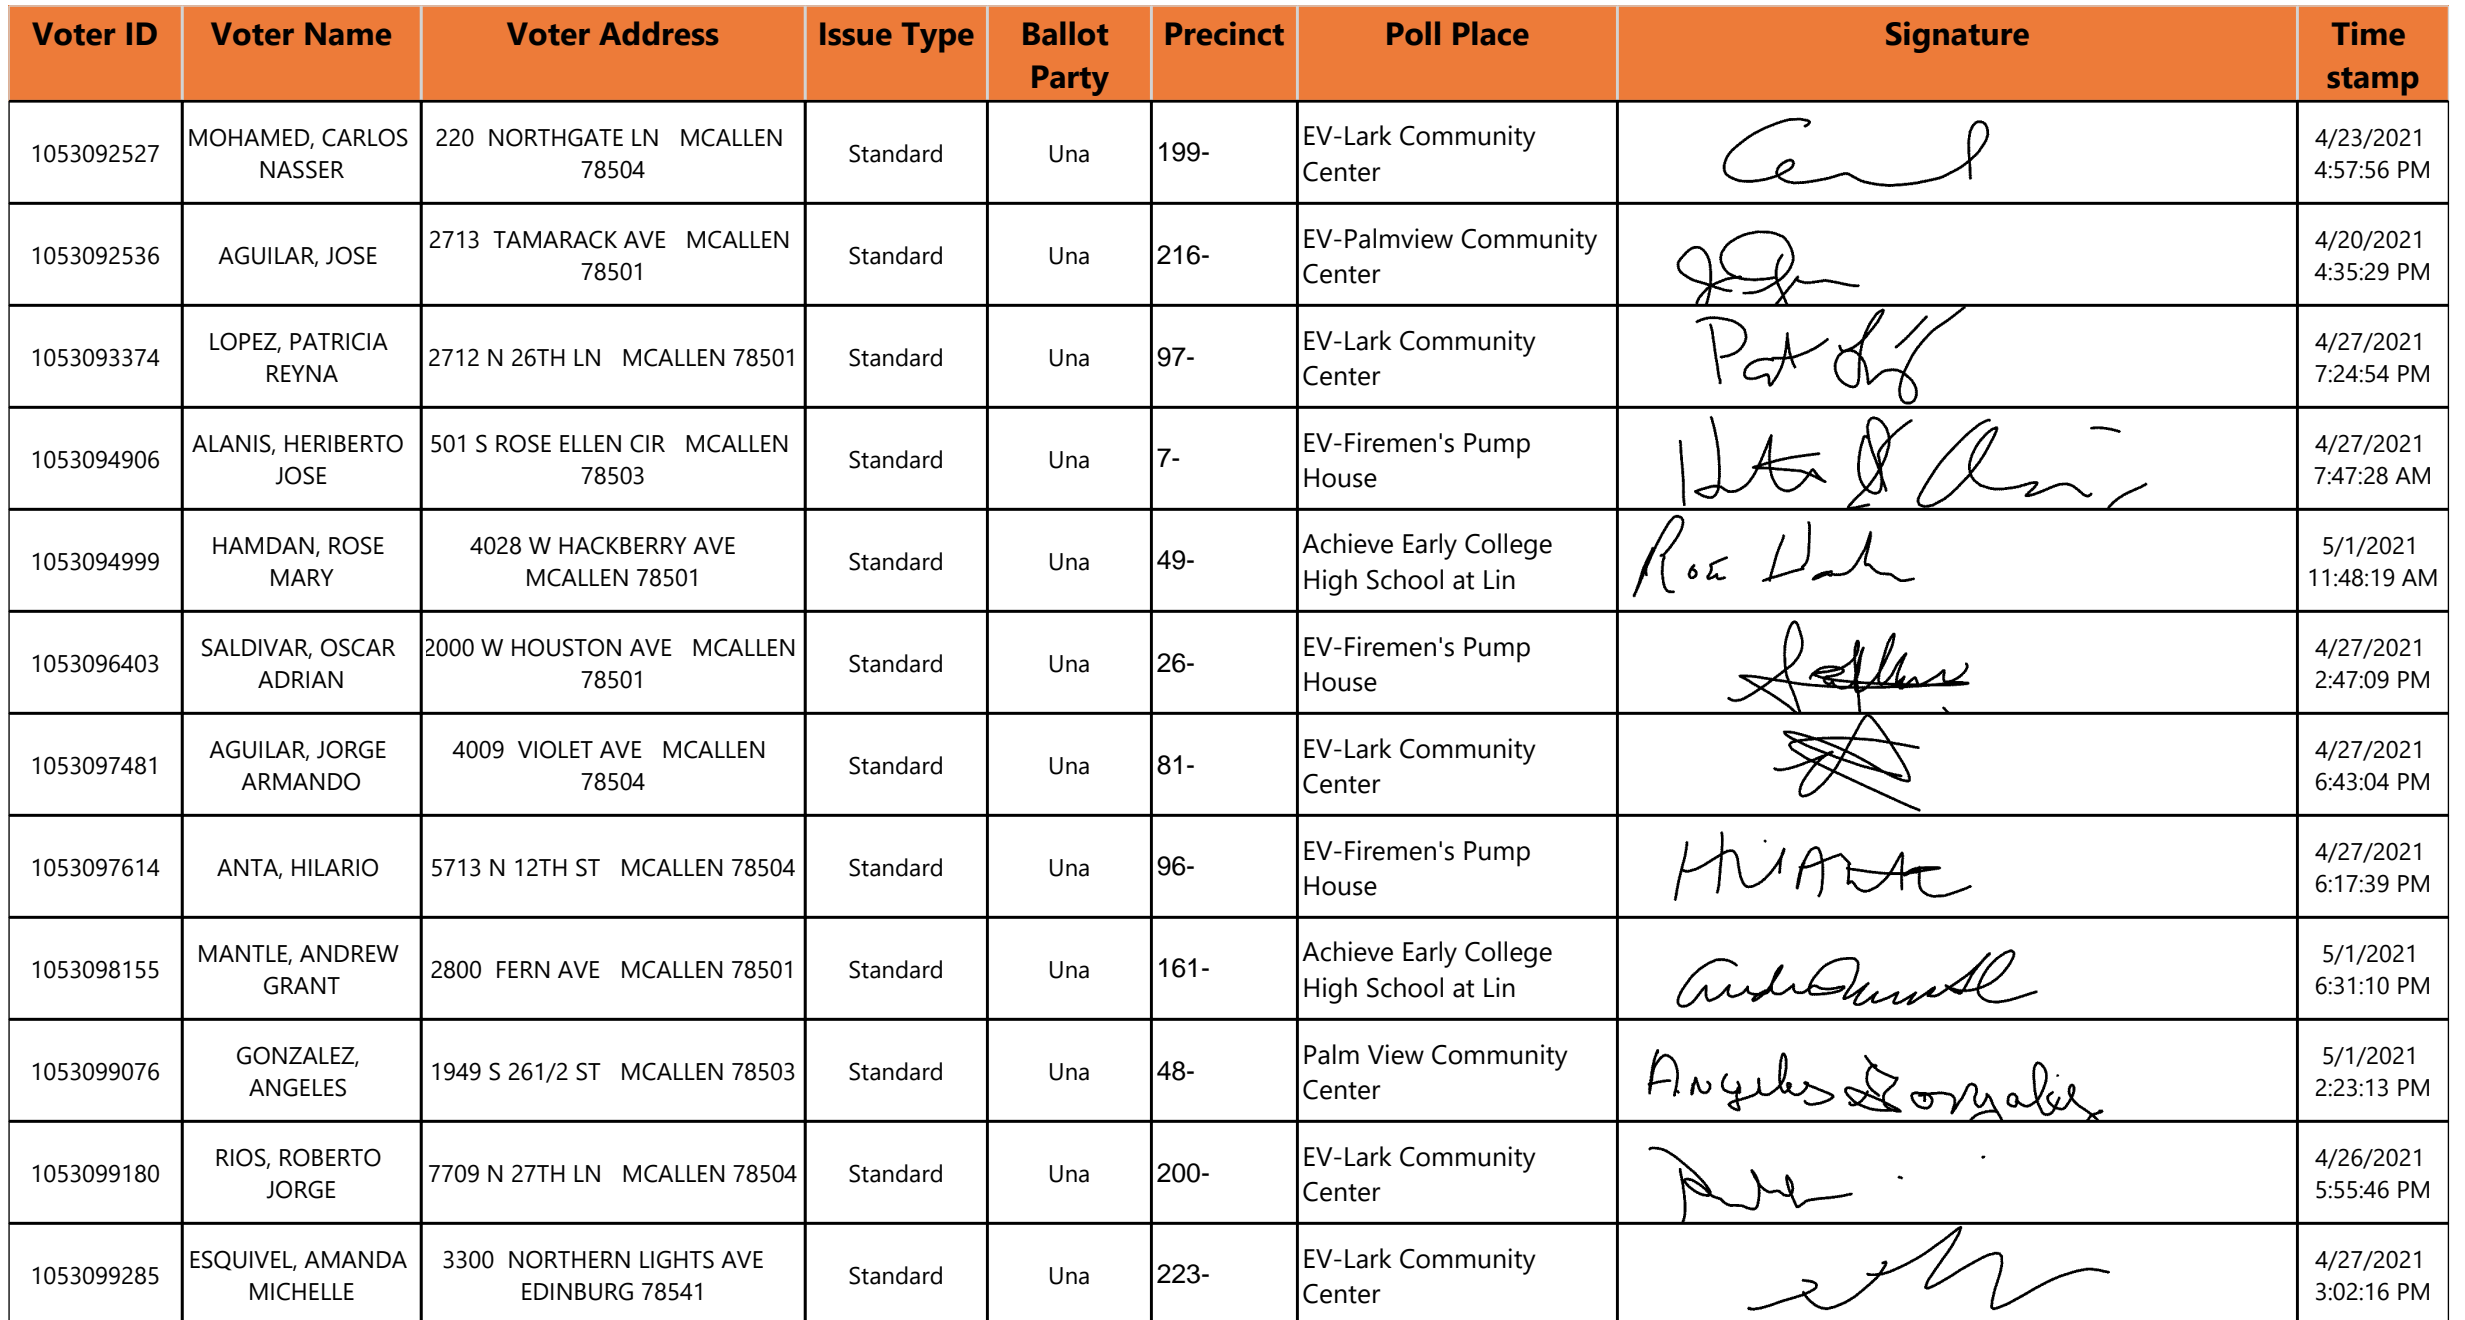 Voter ID Voter Name Voter Address Issue Type Ballot Party Precinct Poll Place Signature Time stamp
1053092527 MOHAMED, CARLOS NASSER 220 NORTHGATE LN MCALLEN 78504 Standard Una 199- EV-Lark Community Center 4/23/2021 4:57:56 PM
1053092536 AGUILAR, JOSE 2713 TAMARACK AVE MCALLEN 78501 Standard Una 216- EV-Palmview Community Center 4/20/2021 4:35:29 PM
1053093374 LOPEZ, PATRICIA REYNA 2712 N 26TH LN MCALLEN 78501 Standard Una 97- EV-Lark Community Center Pat 4/27/2021 7:24:54 PM
1053094906 ALANIS, HERIBERTO JOSE 501 S ROSE ELLEN CIR MCALLEN 78503 Standard Una 7- EV-Firemen's Pump House 4/27/2021 7:47:28 AM
1053094999 HAMDAN, ROSE MARY 4028 W HACKBERRY AVE MCALLEN 78501 Standard Una 49- Achieve Early College High School at Lin Rose 5/1/2021 11:48:19 AM
1053096403 SALDIVAR, OSCAR ADRIAN 2000 W HOUSTON AVE MCALLEN 78501 Standard Una 26- EV-Firemen's Pump House 4/27/2021 2:47:09 PM
1053097481 AGUILAR, JORGE ARMANDO 4009 VIOLET AVE MCALLEN 78504 Standard Una 81- EV-Lark Community Center 4/27/2021 6:43:04 PM
1053097614 ANTA, HILARIO 5713 N 12TH ST MCALLEN 78504 Standard Una 96- EV-Firemen's Pump House 4/27/2021 6:17:39 PM
1053098155 MANTLE, ANDREW GRANT 2800 FERN AVE MCALLEN 78501 Standard Una 161- Achieve Early College High School at Lin 5/1/2021 6:31:10 PM
1053099076 GONZALEZ, ANGELES 1949 S 261/2 ST MCALLEN 78503 Standard Una 48- Palm View Community Center Angeles Gonzalez 5/1/2021 2:23:13 PM
1053099180 RIOS, ROBERTO JORGE 7709 N 27TH LN MCALLEN 78504 Standard Una 200- EV-Lark Community Center 4/26/2021 5:55:46 PM
1053099285 ESQUIVEL, AMANDA MICHELLE 3300 NORTHERN LIGHTS AVE EDINBURG 78541 Standard Una 223- EV-Lark Community Center 4/27/2021 3:02:16 PM